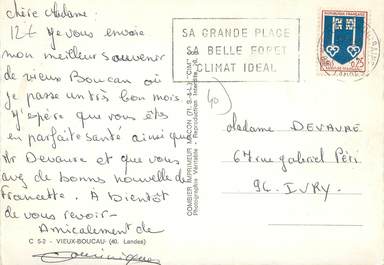 chère Madame :
12t je vous envoie
mon meilleur souvenir
de vieux Boucau où
je passe un très bon mois
J'espère que vous êts
en parfaite santé ainsi que
Mr Devaure et que vous
avez de bonnes nouvelle de
Francette. A Bientôt
de vous revoir -
Amicalement de
Dominique
C 52 - VIEUX-BOUCAU (40. Landes)
COMBIER IMPRIMEUR MACON (71.-S.-&-L.) "CIM"
Photographie Véritable - Reproduction Interdite
SA GRANDE PLACE
SA BELLE FORET
CLIMAT IDEAL
REPUBLIQUE FRANCAISE
0,25
40
Madame DEVAURE
67 rue gabriel Péri
94. IVRY.